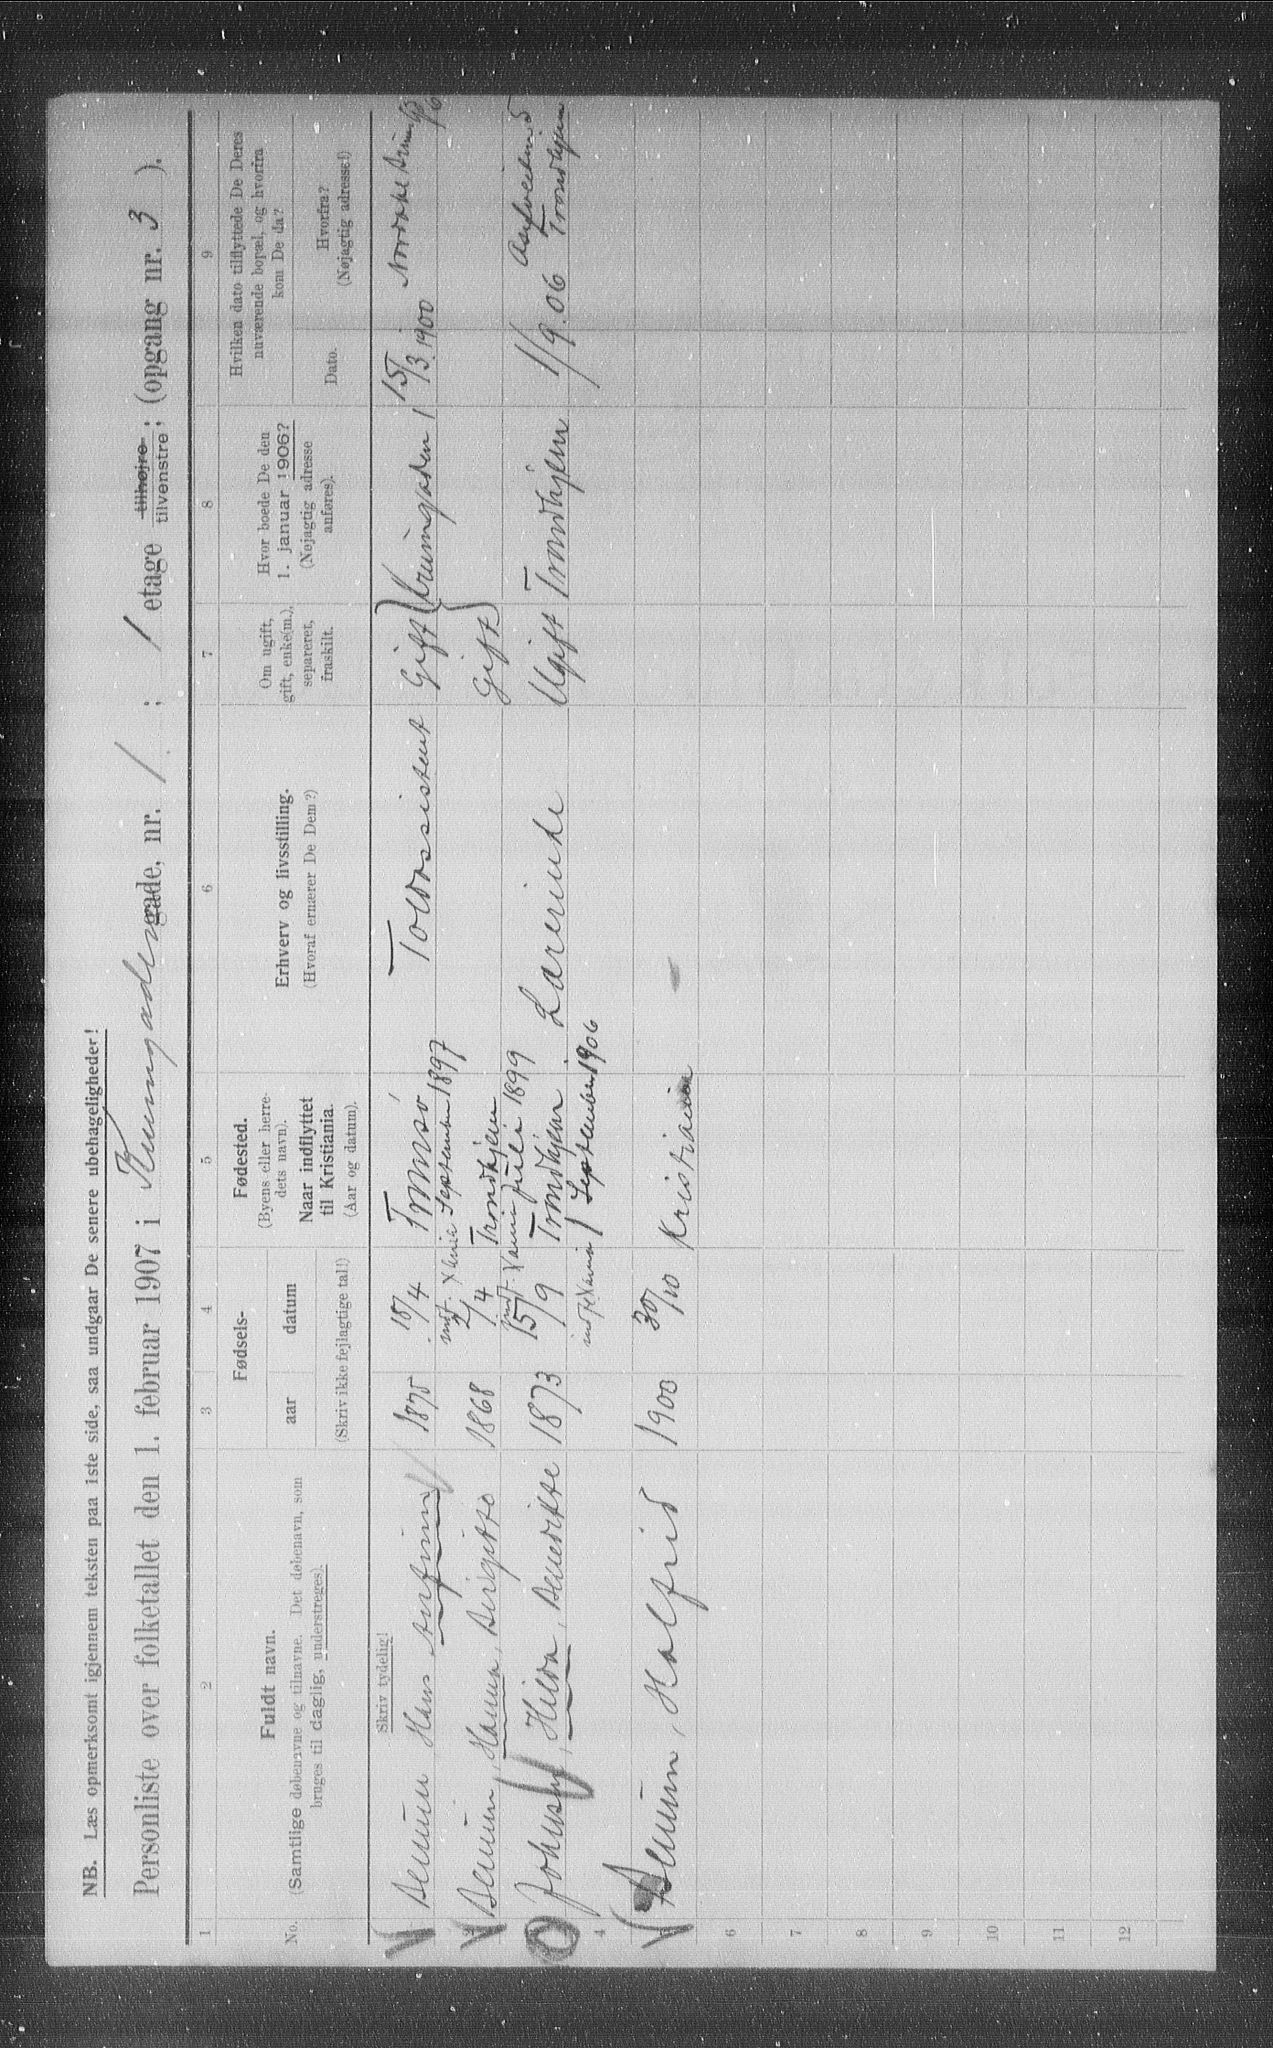 NB. Læs opmerksomt igjennem teksten paa 1ste side, saa undgaar De senere ubehageligheder!
Personliste over folketallet den 1. februar 1907 i Krumgaden gade, nr. 1 ; 1 etage tilhøjre tilvenstre; (opgang nr. 3 ).
1 2 3 4 5 6 7 8 9
No.
Fuldt navn.
(Samtlige døbenavne og tilnavne. Det døbenavn, som
bruges til daglig, understreges).
Fødsels-
aar datum
(Skriv ikke fejlagtige tal!)
Fødested.
(Byens eller herre-
dets navn).
Naar indflyttet
til Kristiania.
(Aar og datum).
Erhverv og livsstilling.
(Hvoraf ernærer De Dem?)
Om ugift,
gift, enke(m.),
separeret,
fraskilt.
Hvor boede De den
1. januar 1906?
(Nøjagtig adresse
anføres).
Hvilken dato tilflyttede De Deres
nuværende bopæl, og hvorfra
kom De da?
Dato.
Hvorfra?
(Nøjagtig adresse!)
Skriv tydelig!
Hans Arnfinn 1875 18/4 Tromsø Toldassistent Gift Krumgaden 1 15/3 1900
indf. X ania September 1897
2 Hanna, Birgitte 1868 2/4 Trondhjem Gift
indf. Xania Juli 1899
Johnsen, Hilda, Benedikte 1873 15/9 Trondhjem Lærerinde Ugift Trondhjem 1/9 06 Trondhjem
4 indf. Xania 1 September 1906
Halfrid 1900 30/10 Kristiania
6
7
8
9
10
11
12